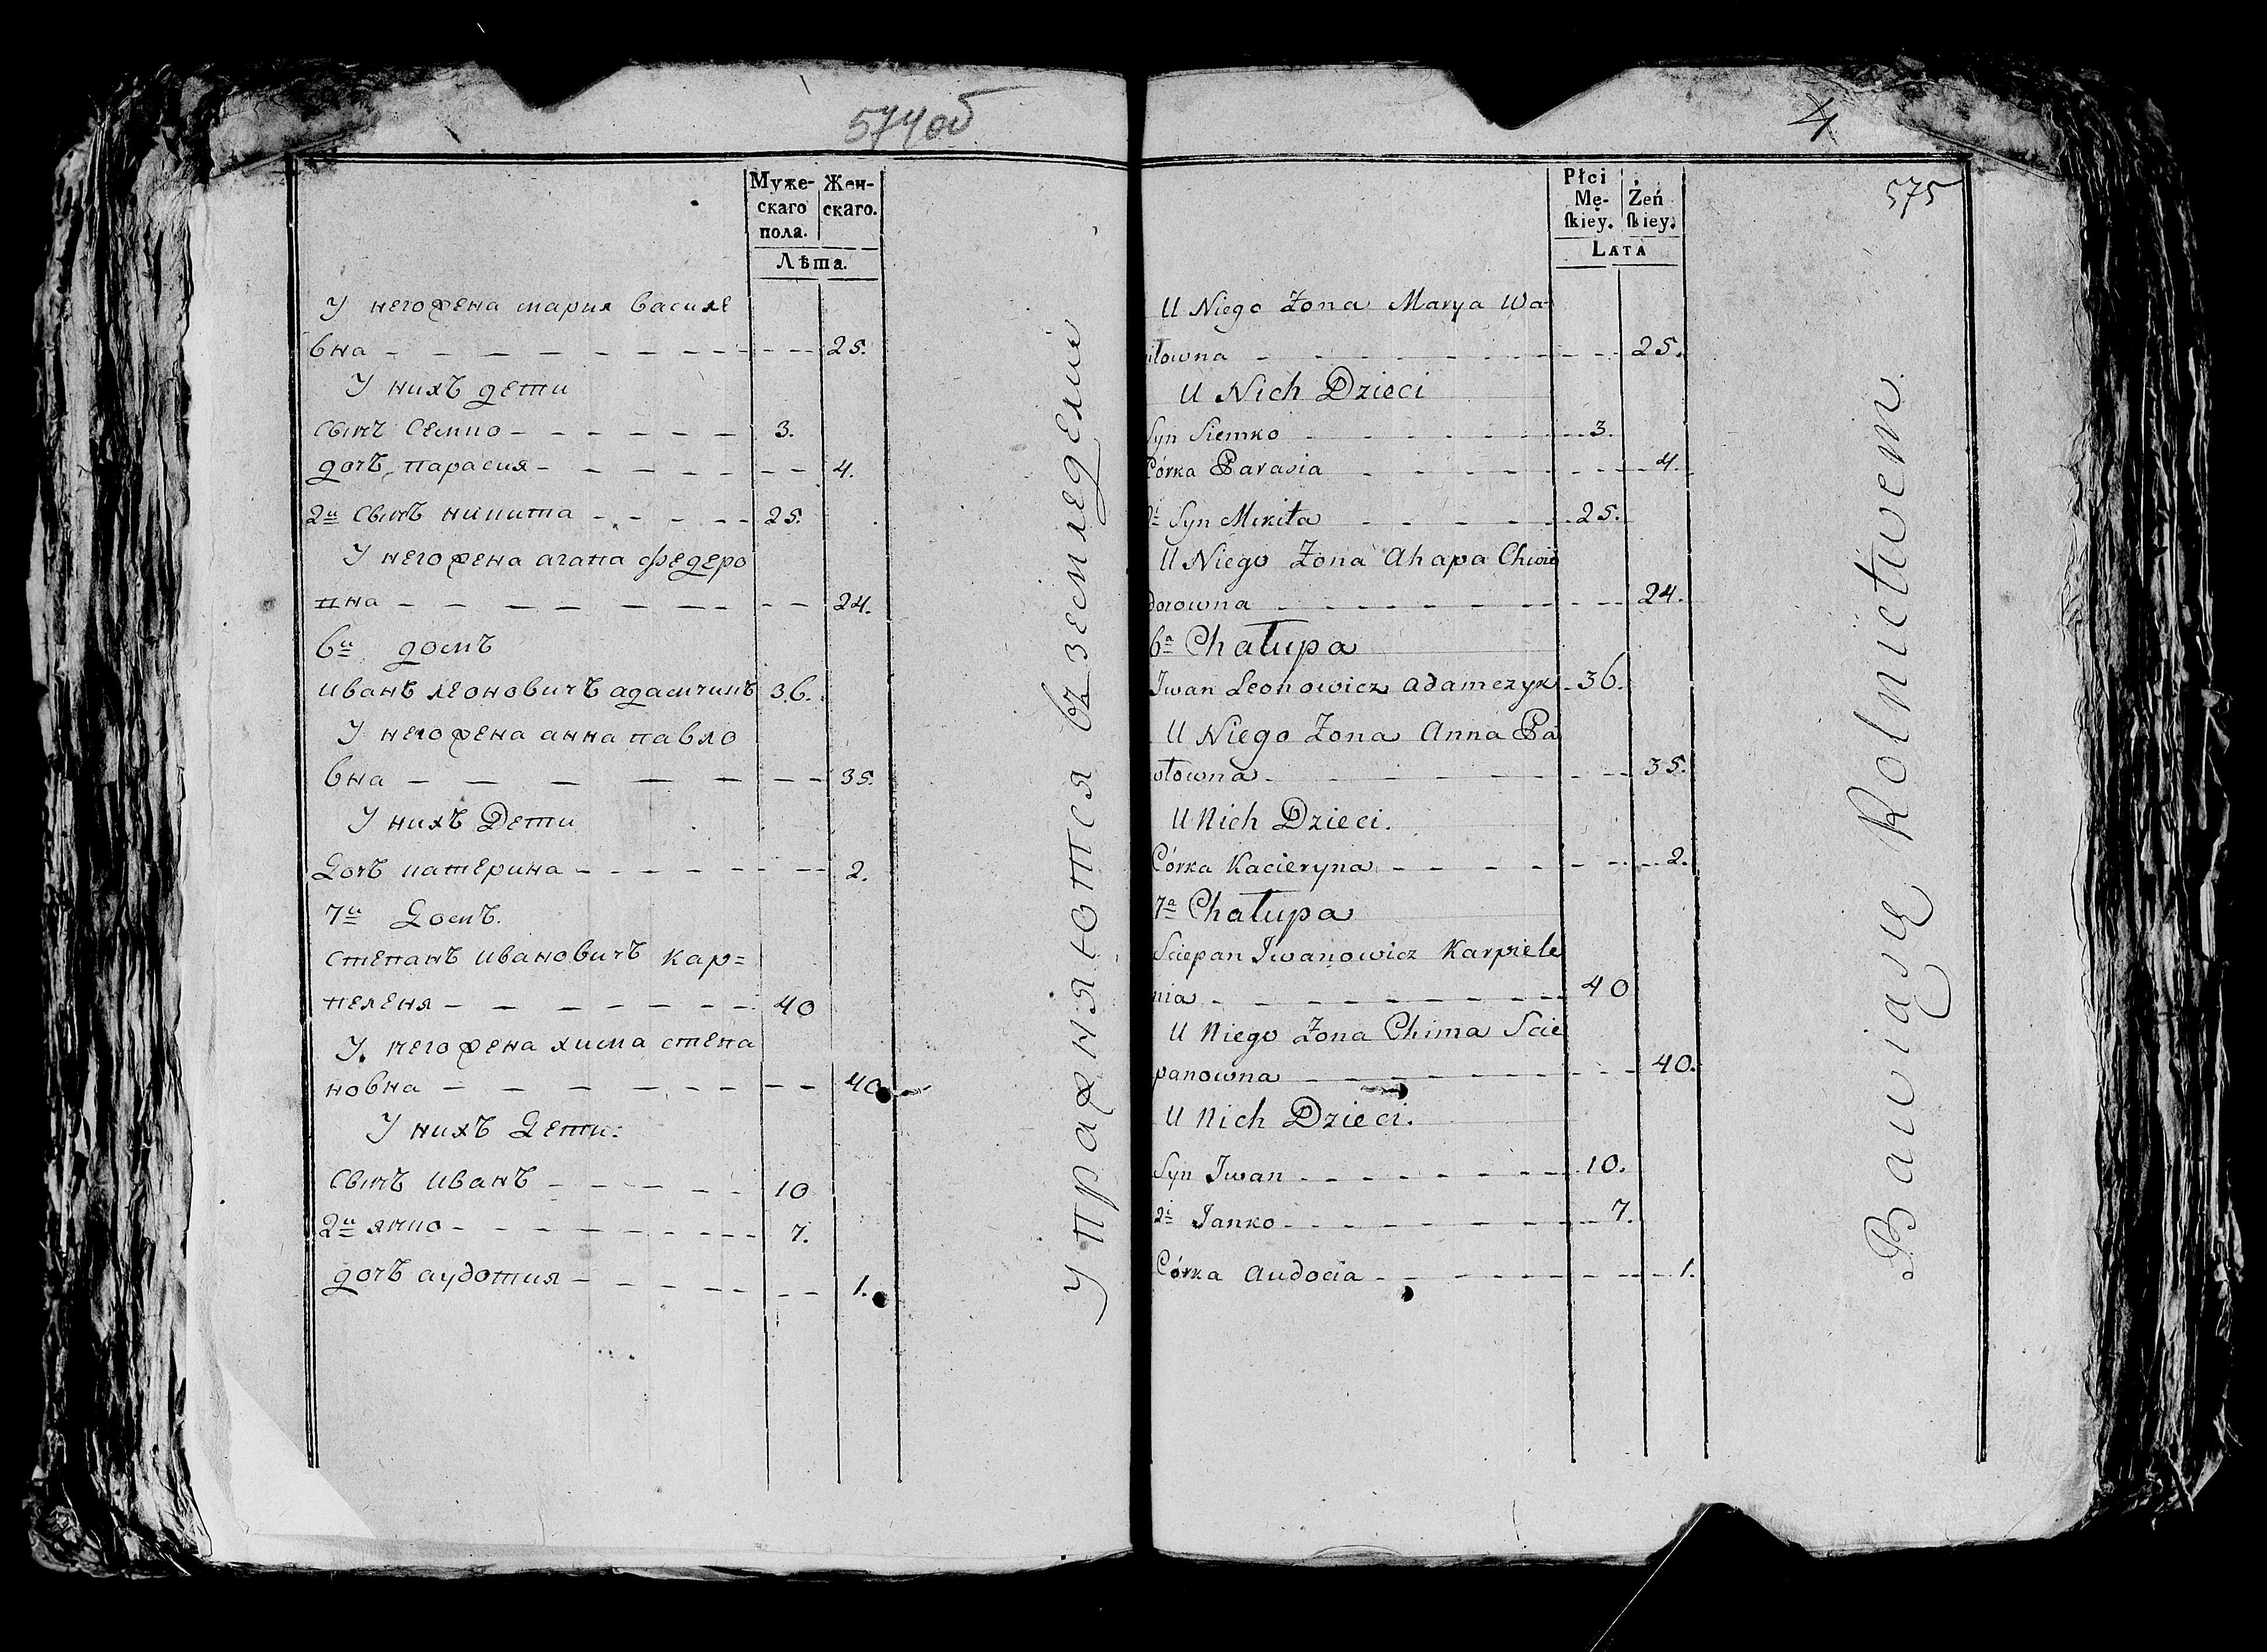 574об
Муже- Жен-
скаго скаго.
пола.
Лѣта.
У него жена мария василе
вна 25.
У нихъ дети
сынъ семко 3.
дочъ парасия 4.
2й сынъ никита 25.
У него жена агапа федеро
вна 24.
6й домъ
иванъ леоновичъ адамчикъ 36.
У него жена анна павло
вна 35.
У нихъ Дети
Дочъ катерина 2.
7й Домъ.
степанъ ивановичъ кар=
пеленя 40
У него жена хима степа
новна 40
У нихъ Дети:
сынъ иванъ 10
2й янко 7.
дочъ аудотия 1.
упражняются въ земледелии
4
575
Płci Żeń
Mę- skiey.
skiey.
Lata
U Niego Żona Marya Wa-
iłowna 25.
U Nich Dzieci
Syn Siemko 3.
Córka Parasia 4.
2i Syn Mikita 25.
U Niego Żona Ahapa Chwie
dorowna 24.
6a Chałupa
Iwan Leonowicz Adamczyk 36.
U Niego Żona Anna Pa
włowna 35.
U Nich Dzieci.
Córka Kacieryna 2.
7a Chałupa
Sciepan Iwanowicz Karpiele
nia 40
U Niego Żona Chima Scie
panowna 40.
U Nich Dzieci.
Syn Iwan 10.
2i Janko 7.
Córka Audocia 1.
Bawiąsię Rolnictwem.